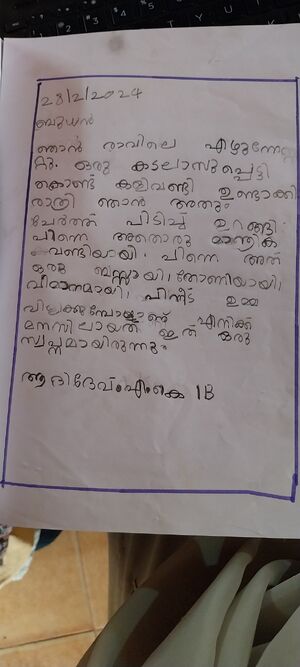 28/2/2024
ബുധൻ
ഞാൻ രാവിലെ എഴുന്നേ
റ്റു. ഒരു കടലാസുപ്പെട്ടി
കൊണ്ട് കളിവണ്ടി ഉണ്ടാക്കി
രാത്രി ഞാൻ അതും
ചേർത്ത് പിടിച്ച് ഉറങ്ങി.
പിന്നെ അതൊരു മാന്ത്രിക
വണ്ടിയായി. പിന്നെ അത്
ഒരു ബസ്സായി, തോണിയായി,
വിമാനമായി, പിന്നീട് ഉമ്മ
വിളിക്കുമ്പോഴാണ് എനിക്ക്
മനസിലായത് ഇത് ഒരു
സ്വപ്നമായിരുന്നു.
ആദിദേവ്.എം.കെ 1B